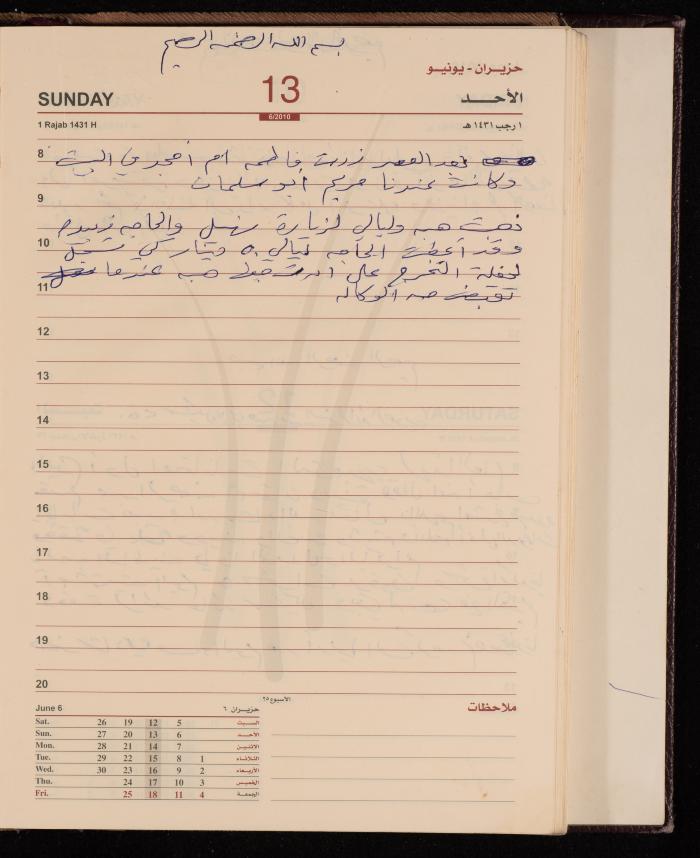 بسم الله الرحمن الرحيم
حزيـران - يونيـو
SUNDAY 13 الأحـــد
6/2010
1 Rajab 1431 H ١ رجب ١٤٣١ هـ
8 بعد العصر زرت فاطمه ام امجد في البيت
وكانت عندنا مريم ابو سلمان
9
ذهبت هبه وليالي لزيارة نهيل والحاجه زبيده
10 وقد أعطت الحاجه ليالي ٥٠ دينار كي تسجل
لحفلة التخرج على ان عندما
11 تقبض من الوكاله
12
13
14
15
16
17
18
19
20
June 6 حزيـران ٦
الأسبوع ٢٥
ملاحظات
Sat. 26 19 12 5 السبت
Sun. 27 20 13 6 الأحد
Mon. 28 21 14 7 الاثنين
Tue. 29 22 15 8 1 الثلاثاء
Wed. 30 23 16 9 2 الأربعاء
Thu. 24 17 10 3 الخميس
Fri. 25 18 11 4 الجمعة